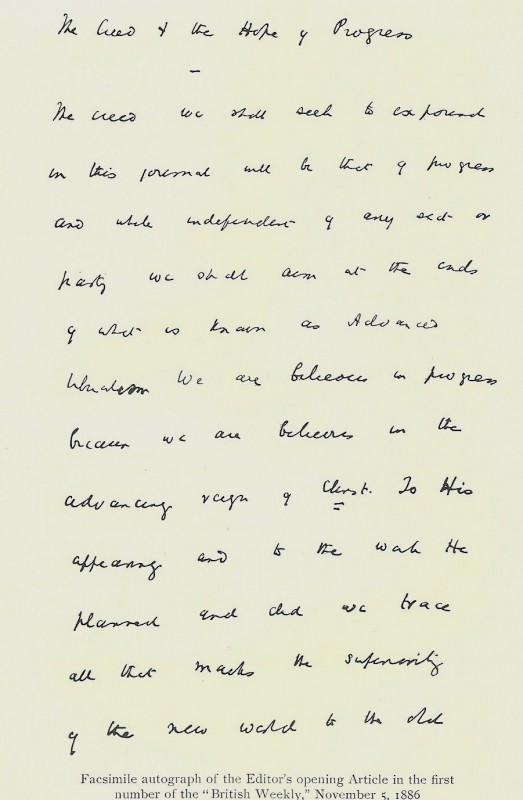 The Creed & the Hope of Progress
The creed we shall seek to expound
in this journal will be that of progress
and while independent of any sect or
party we shall aim at the ends
of what is known as Advanced
Liberalism We are believers in progress
because we are believers in the
advancing reign of Christ. To His
appearing and to the work He
planned and did we trace
all that marks the superiority
of the new world to the old
Facsimile autograph of the Editor's opening Article in the first
number of the "British Weekly," November 5, 1886